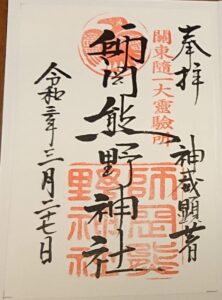 奉拝
神威顕著
關東隨一大靈驗所
師岡熊野神社
令和三年三月二十七日
師岡熊
野神社